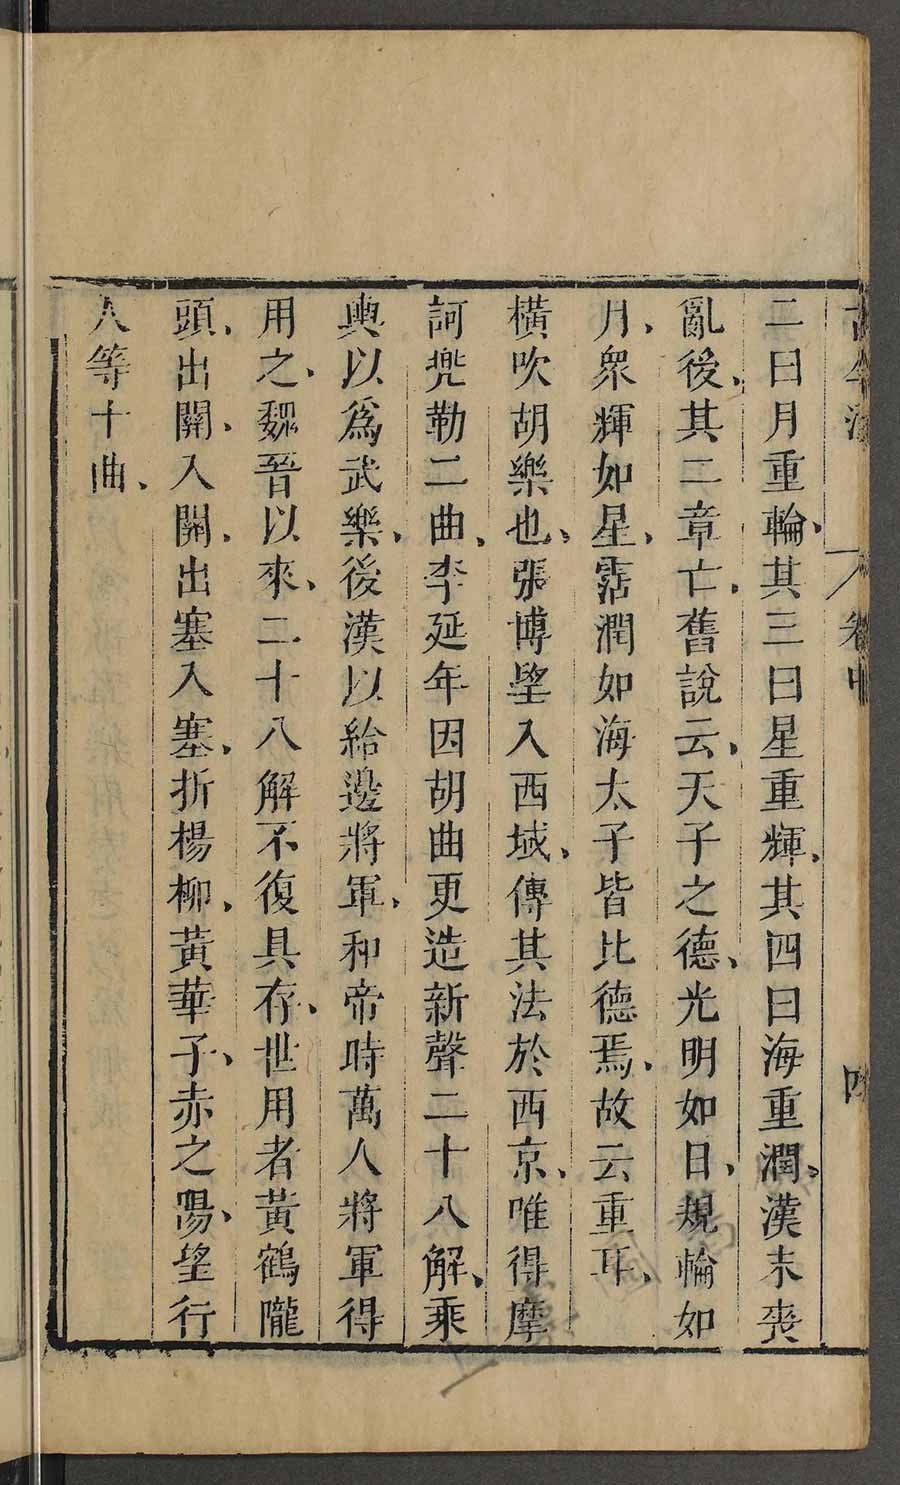 古今注 卷中 四
二曰月重輪、其三曰星重輝、其四曰海重潤、漢末喪
亂後、其二章亡、舊說云、天子之德、光明如日、規輪如
月、衆輝如星、霑潤如海太子皆比德焉、故云重耳、
橫吹胡樂也、張博望入西域、傳其法於西京、唯得摩
訶兜勒二曲、李延年因胡曲更造新聲二十八解、乘
輿以爲武樂、後漢以給邊將軍、和帝時萬人將軍得
用之、魏晉以來、二十八解不復具存、世用者黃鶴隴
頭、出關、入關、出塞入塞、折楊柳、黃華子、赤之陽、望行
人等十曲、